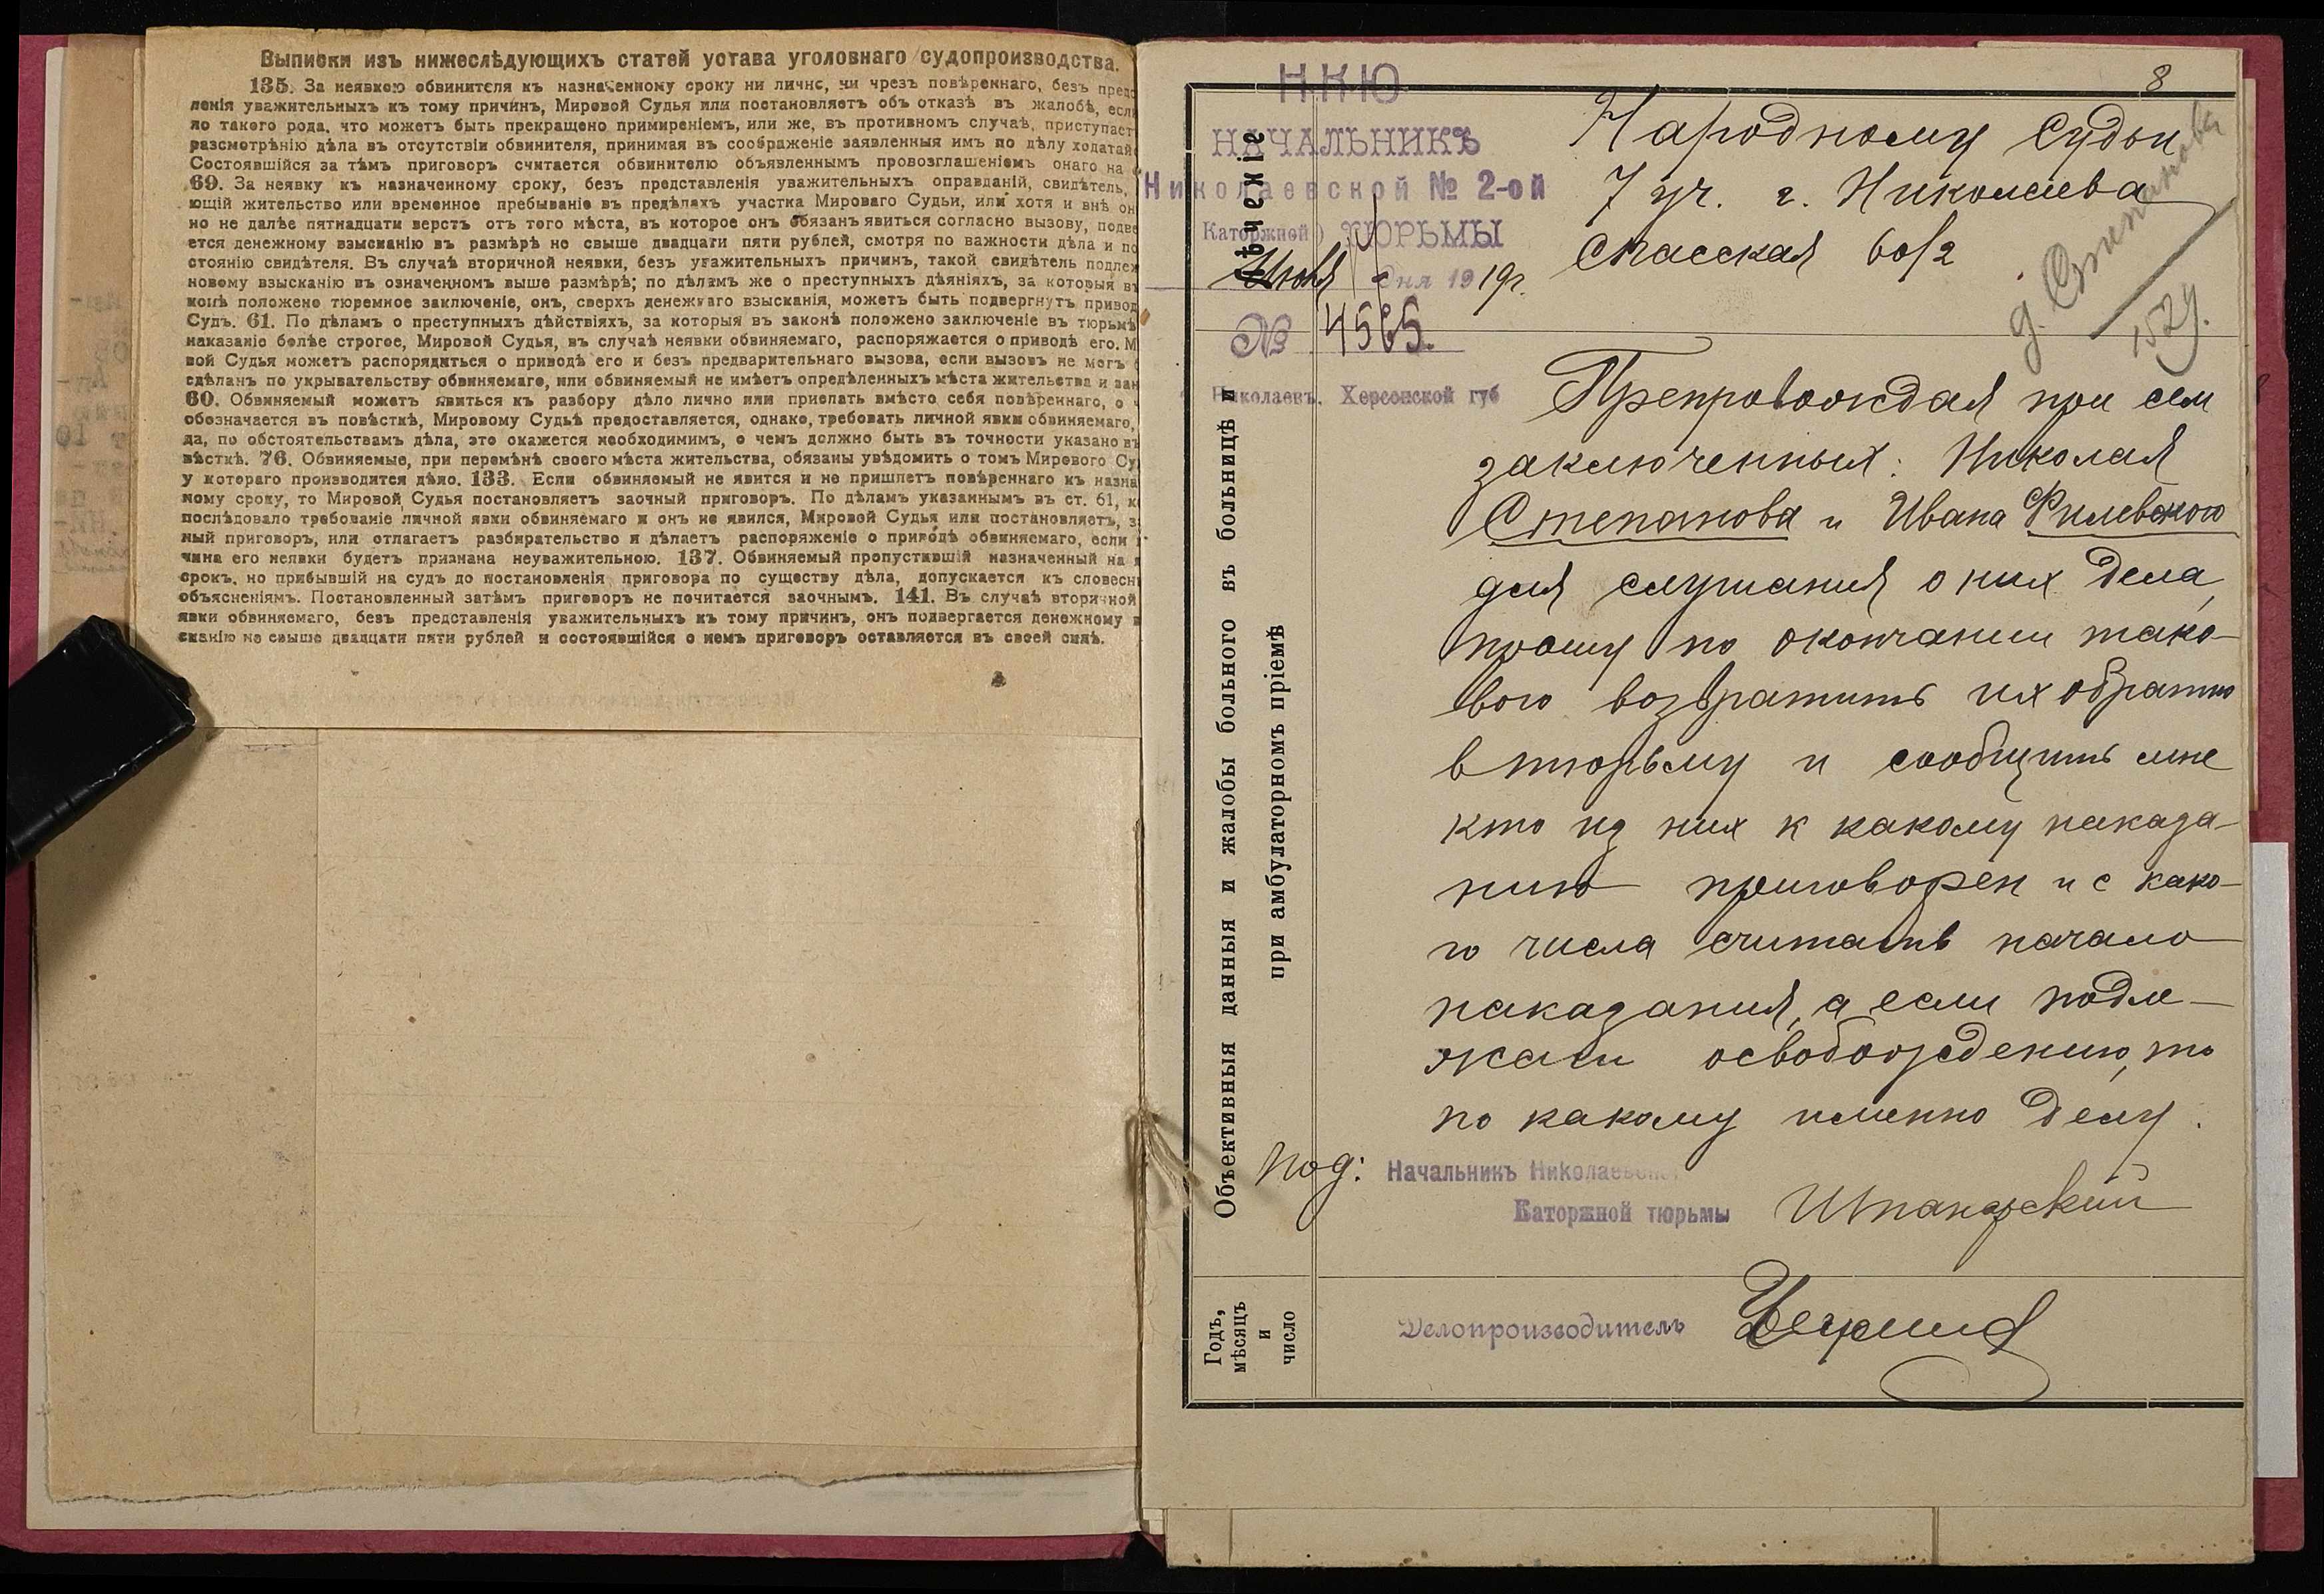 Выписки изъ нижеслѣдующихъ статей устава уголовнаго судопроизводства.
135. За неявкою обвинителя къ назначенному сроку ни лично, ни чрезъ повѣреннаго, безъ предс
ленія уважительныхъ къ тому причинъ, Мировой Судья или постановляетъ объ отказѣ въ жалобѣ, если
ло такого рода, что можетъ быть прекращено примиреніемъ, или же, въ противномъ случаѣ, приступает
разсмотрѣнію дѣла въ отсутствіи обвинителя, принимая въ соображеніе заявленныя имъ по дѣлу ходатай
Состоявшійся за тѣмъ приговоръ считается обвинителю объявленнымъ провозглашеніемъ онаго на
69. За неявку къ назначенному сроку, безъ представленія уважительныхъ оправданій, свидѣтель,
ющій жительство или временное пребываніе въ предѣлахъ участка Мироваго Судьи, или хотя и внѣ он
но не далѣе пятнадцати верстъ отъ того мѣста, въ которое онъ обязанъ явиться согласно вызову, подве
ется денежному взысканію въ размѣрѣ не свыше двадцати пяти рублей, смотря по важности дѣла и по
стоянію свидѣтеля. Въ случаѣ вторичной неявки, безъ уважительныхъ причинъ, такой свидѣтель подлеж
новому взысканію въ означенномъ выше размѣрѣ; по дѣламъ же о преступныхъ дѣяніяхъ, за которыя въ
конѣ положено тюремное заключеніе, онъ, сверхъ денежнаго взысканія, можетъ быть подвергнутъ привод
Судъ. 61. По дѣламъ о преступныхъ дѣйствіяхъ, за которыя въ законѣ положено заключеніе въ тюрьмѣ
наказаніе болѣе строгое, Мировой Судья, въ случаѣ неявки обвиняемаго, распоряжается о приводѣ его. М
вой Судья можетъ распорядиться о приводѣ его и безъ предварительнаго вызова, если вызовъ не могъ
сдѣланъ по укрывательству обвиняемаго, или обвиняемый не имѣетъ опредѣленныхъ мѣста жительства и зан
60. Обвиняемый можетъ явиться къ разбору дѣло лично или прислать вмѣсто себя повѣреннаго, о ч
обозначается въ повѣсткѣ, Мировому Судьѣ предоставляется, однако, требовать личной явки обвиняемаго,
да, по обстоятельствамъ дѣла, это окажется необходимимъ, о чемъ должно быть въ точности указано въ
вѣсткѣ. 76. Обвиняемые, при перемѣнѣ своего мѣста жительства, обязаны увѣдомить о томъ Мирового Су
у котораго производится дѣло. 133. Если обвиняемый не явится и не пришлетъ повѣреннаго къ назна
ному сроку, то Мировой Судья постановляетъ заочный приговоръ. По дѣламъ указаннымъ въ ст. 61, к
послѣдовало требованіе личной явки обвиняемаго и онъ не явился, Мировой Судья или постановляетъ, з
ный приговоръ, или отлагаетъ разбирательство и дѣлаетъ распоряженіе о приводѣ обвиняемаго, если
чина его неявки будетъ признана неуважительною. 137. Обвиняемый пропустившій назначенный на я
срокъ, но прибывшій на судъ до постановленія приговора по существу дѣла, допускается къ словесн
объясненіямъ. Постановленный затѣмъ приговоръ не почитается заочнымъ. 141. Въ случаѣ вторичной
явки обвиняемаго, безъ представленія уважительныхъ къ тому причинъ, онъ подвергается денежному в
сканію не свыше двадцати пяти рублей и состоявшійся о немъ приговоръ оставляется въ своей силѣ.
8
НКЮ
НАЧАЛЬНИКЪ
Николаевской № 2-ой
Каторжной ТЮРЬМЫ
Июня дня 1919г.
№ 4565.
Николаевъ, Херсонской губ
Народному Судьи
7 уч. г. Николаева
Спасская 60/2
д. Степанова
152 г.
Препровождая при сем
заключенных: Николая
Степанова и Ивана Филевского
для слушания о них дела,
прошу по окончании тако-
вого возвратить их обратно
в тюрьму и сообщить мне
кто из них к какому наказа-
нию приговорен и с како-
го числа считать начало
наказания, а если подле-
жали освобождению, то
по какому именно делу.
под: Начальникъ Николаевской
Каторжной тюрьмы
Делопроизводитель
Лѣченіе
Объективныя данныя и жалобы больного въ больницѣ и
при амбулаторномъ пріемѣ
Годъ,
мѣсяцъ
и
число